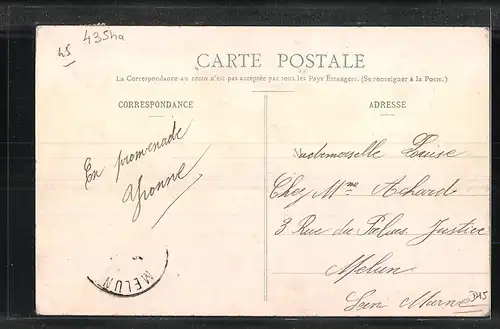 45
435ha
CARTE POSTALE
La Correspondance au recto n'est pas acceptée par tous les Pays Étrangers. (Se renseigner à la Poste.)
CORRESPONDANCE
ADRESSE
En promenade
Yvonne
Mademoiselle Louise
Chez Mme Achard
3 Rue du Palais Justice
Melun
Sein Marne
MELUN